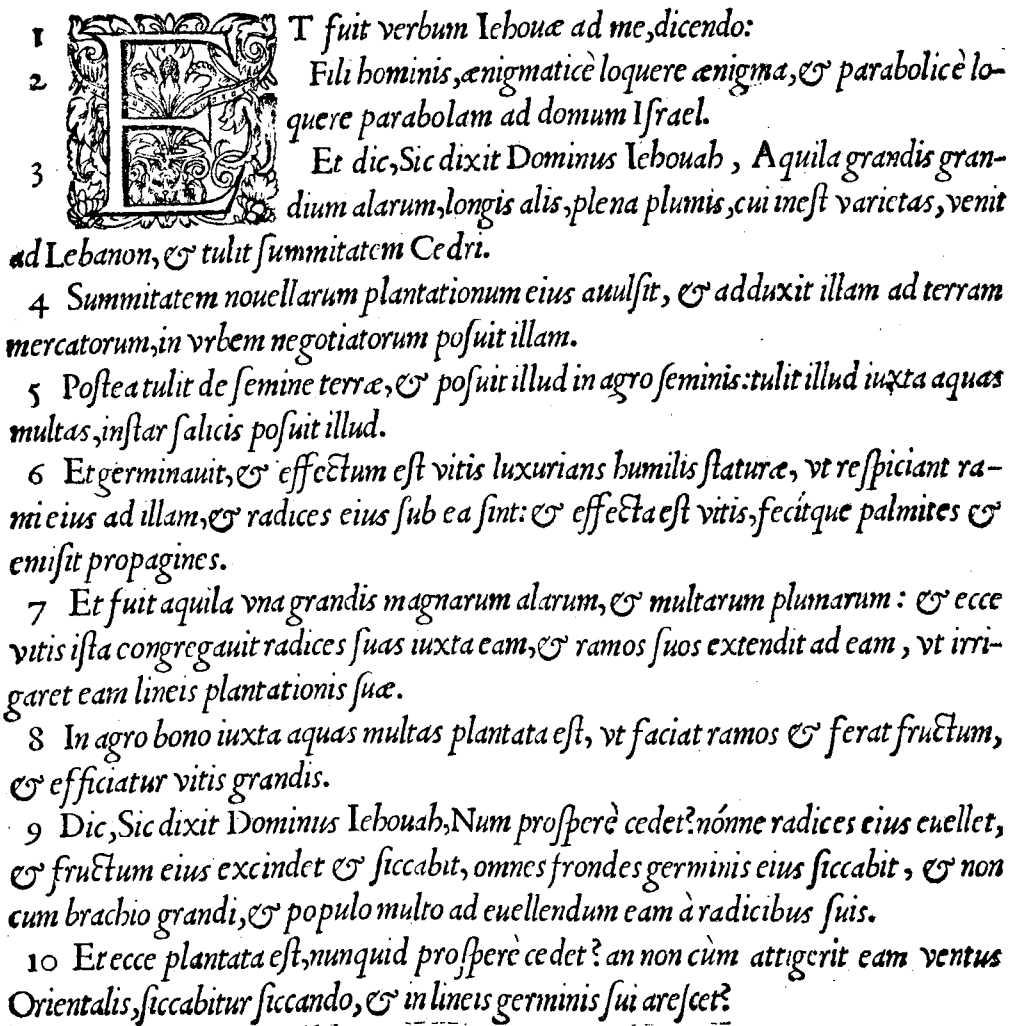 1 ET fuit verbum Iehouæ ad me, dicendo:
2 Fili hominis, ænigmaticè loquere ænigma, & parabolicè lo-
quere parabolam ad domum Iſrael.
3 Et dic, Sic dixit Dominus Iehouah, Aquila grandis gran-
dium alarum, longis alis, plena plumis, cui ineſt varietas, venit
ad Lebanon, & tulit ſummitatem Cedri.
4 Summitatem nouellarum plantationum eius auulſit, & adduxit illam ad terram
mercatorum, in vrbem negotiatorum poſuit illam.
5 Poſtea tulit de ſemine terræ, & poſuit illud in agro ſeminis: tulit illud iuxta aquas
multas, inſtar ſalicis poſuit illud.
6 Et germinauit, & effectum eſt vitis luxurians humilis ſtaturæ, vt reſpiciant ra-
mi eius ad illam, & radices eius ſub ea ſint: & effecta eſt vitis, fecítque palmites &
emiſit propagines.
7 Et fuit aquila vna grandis magnarum alarum, & multarum plumarum: & ecce
vitis iſta congregauit radices ſuas iuxta eam, & ramos ſuos extendit ad eam, vt irri-
garet eam lineis plantationis ſuæ.
8 In agro bono iuxta aquas multas plantata eſt, vt faciat ramos & ferat fructum,
& efficiatur vitis grandis.
9 Dic, Sic dixit Dominus Iehouah, Num proſperè cedet? nónne radices eius euellet,
& fructum eius excindet & ſiccabit, omnes frondes germinis eius ſiccabit, & non
cum brachio grandi, & populo multo ad euellendum eam à radicibus ſuis.
10 Et ecce plantata eſt, nunquid proſperè cedet? an non cùm attigerit eam ventus
Orientalis, ſiccabitur ſiccando, & in lineis germinis ſui areſcet?